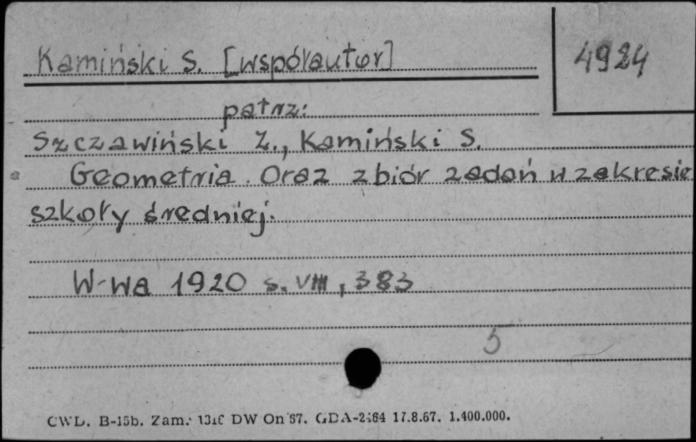 Kamiński S. [współautor]
4924
patrz:
Szczawiński Z., Kamiński S.
Geometria. Oraz zbiór zadań w zakresie
szkoły średniej.
W-wa 1920 s. VIII, 383
5
CWD. B-15b. Zam. DW On 67. GDA-2/64 17.8.67. 1.400.000.